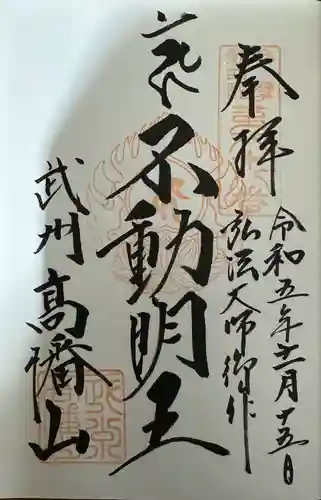 奉拝
令和五年十一月十五日
弘法大師御作
不動明王
武州
高幡山